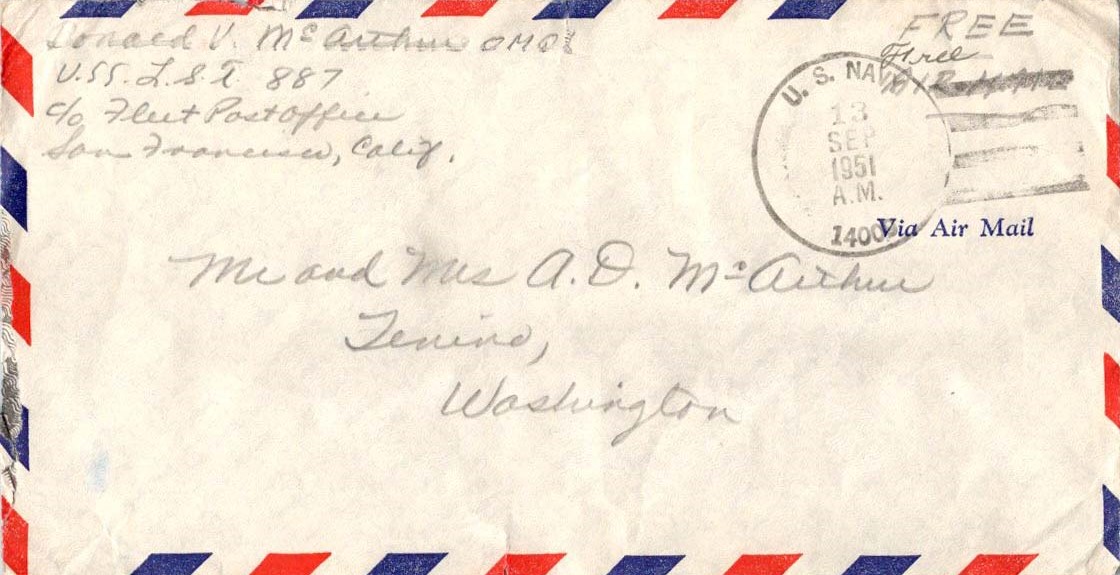 Donald V. McArthur
U.S.S. L.S.T. 887
c/o Fleet Post Office
San Francisco, Calif.
FREE
Free
AIR MAIL
U. S. NAVY
13
SEP
1951
A.M.
14007
Via Air Mail
Mr and Mrs A. D. McArthur
Tenino,
Washington